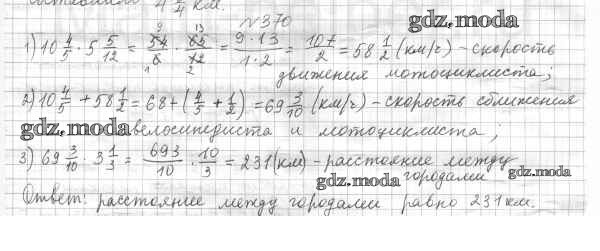 составили 4 4/4 км.
№370 gdz.moda
1) 10 4/5 · 5 5/12 = 54/5 · 65/12 = 9·13/1·2 = 107/2 = 58 1/2 (км/г) - скорость
движения мотоциклиста;
2) 10 4/5 + 58 1/2 = 68 + (4/5 + 1/2) = 69 3/10 (км/г) - скорость сближения
gdz.moda велосипедиста и мотоциклиста;
3) 69 3/10 · 3 1/3 = 693/10 · 10/3 = 231 (км) - расстояние между
gdz.moda городами gdz.moda
Ответ: расстояние между городами равно 231 км.